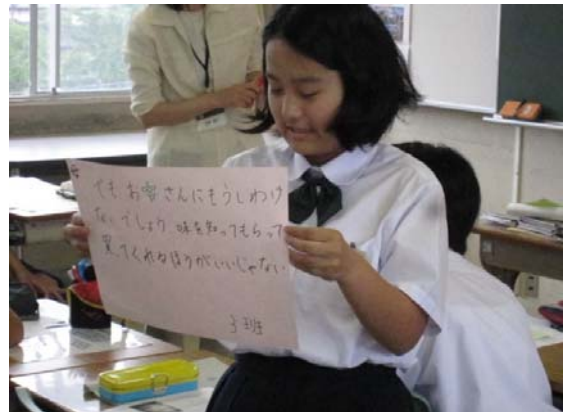 でも、お客さんにもうしわけ
ないでしょう。味を知ってもらって
買ってくれるほうがいいじゃない
3班